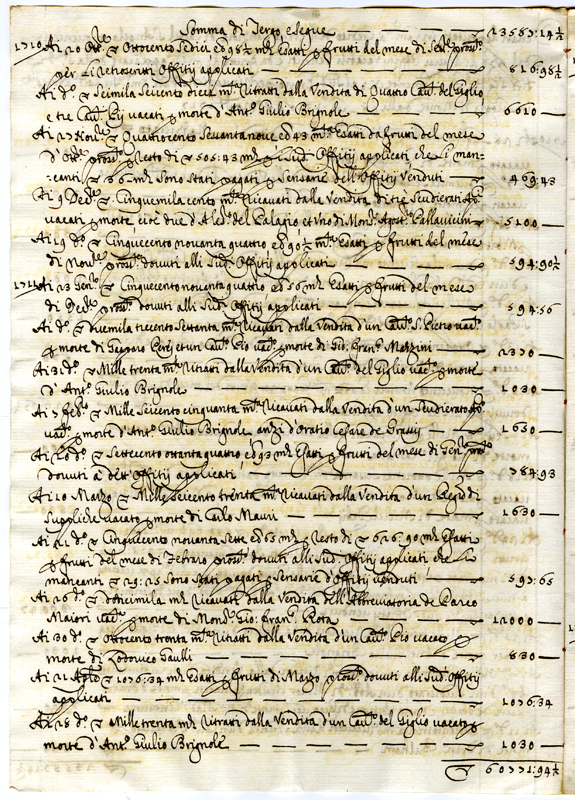 Somma di tergo e segue — 23587:14½
1710 Ai 20 Ott.e ▽ Ottocento Sedici ed 98½ m.ta Esatti p frutti del mese di Sett.e pross.o
per li retroscritti Offitij applicati — 816:98½
Ai d.o ▽ Seimila Seicento dieci m.ta Ritratti dalla Vendita di Quattro Cau.ti del Giglio
e tre Cau.ti Pij vacati p morte d'Ant.o Giulio Brignole — 6610
Ai 27 Nou.re ▽ Quattrocento Sessantanoue ed 43 m.ta Esatti da frutti del mese
d'Ott.e pross.o p resto di ▽ 505:43 m.ta p li Sud.i Offitij applicati che li man-
canti ▽ 36 m.ta Sono Stati pagati p Senserie dell'Offitij Venduti — 469:43
Ai 9 Dec.re ▽ Cinquemila cento m.ta Ricauati dalla Vendita di tre Scudierati
vacati p morte, cioè due d'A ed.o del Palagio et Uno di Mons.r Agost.o Pallauicini — 5100
Ai 19 d.o ▽ Cinquecento nouanta quattro ed 90½ m.ta Esatti p frutti del mese
di Nou.re pross.o douuti alli Sud.i Offitij applicati — 594:90½
1711 Ai 23 Gen.ro ▽ Cinquecento nouanta quattro ed 56 m.ta Esatti p frutti del mese
di Dec.re pross.o douuti alli Sud.i Offitij applicati — 594:56
Ai d.o ▽ duemila trecento Settanta m.ta Ricauati dalla Vendita d'un Cau.to S. Pietro vac.o
p morte di Gaspare Perej et un Cau.to Pio vac.o p morte di Gio. Fran.co Mazzini — 2370
Ai 31 d.o ▽ Mille trenta m.ta Ritratti dalla Vendita d'un Cau.to del Giglio vac.o p morte
d'Ant.o Giulio Brignole — 1030
Ai 7 Feb.o ▽ Mille Seicento cinquanta m.ta Ricauati dalla Vendita d'un Scudierato
vac.o p morte d'Ant.o Giulio Brignole anzi d'Oratio Cesare de Grassij — 1650
Ai 20 d.o ▽ Settecento ottanta quattro, ed 93 m.ta Esatti p frutti del mese di Gen.ro pross.o
douuti a detti Offitij applicati — 784:93
Ai 10 Marzo ▽ Mille Seicento trenta m.ta Ricauati dalla Vendita d'un Reg.o di
Suppliche vacato p morte di Carlo Mauri — 1630
Ai 21 d.o ▽ Cinquecento nouanta Sette ed 65 m.ta p resto di ▽ 626:90 m.ta Esatti
p frutti del mese di Febraro pross.o douuti alli Sud.i Offitij applicati che li
mancanti ▽ 29:25 Sono Stati pagati p Senserie d'Offitij Venduti — 597:65
Ai 26 d.o ▽ dodicimila m.ta Ricauati dalla Vendita dell'Abbreuiatoria de Parco
Maiori vac.a p morte di Mons.r Gio. Fran.co Rota — 12000
Ai 30 d.o ▽ Ottocento trenta m.ta Ritratti dalla Vendita d'un Cau.to Pio vacato p
morte di Lodouico Gaulli — 830
Ai 21 Aprile ▽ 1076:34 m.ta Esatti p frutti di Marzo pross.o douuti alli Sud.i Offitij
applicati — 1076:34
Ai 28 d.o ▽ Mille trenta m.ta Ritratti dalla Vendita d'un Cau.to del Giglio vacato p
morte d'Ant.o Giulio Brignole — 1030
▽ 60771:94½